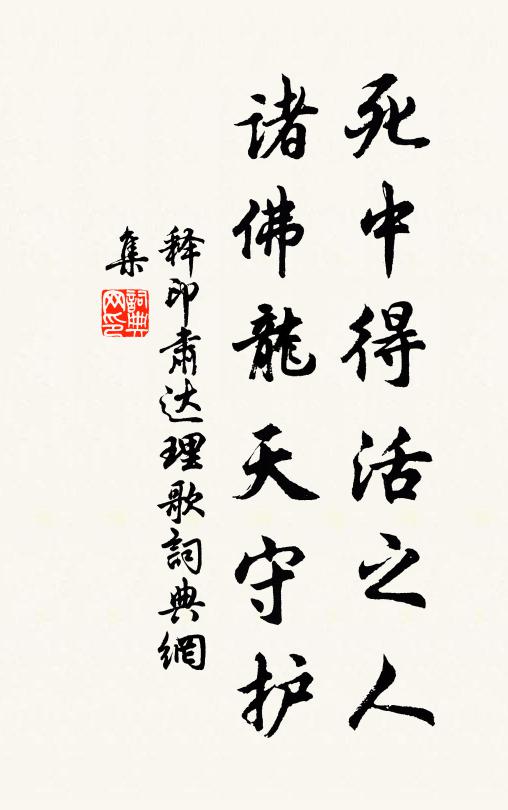 死中得活之人
诸佛龍天守护
释印肃达理歌詞典網
集
詞典
网印